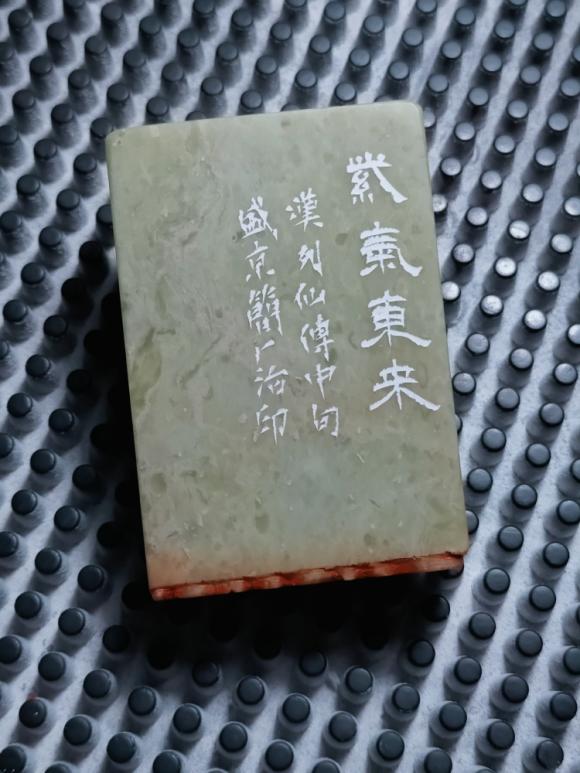 紫氣東来
漢列仙傳中句
盛京簡厂治印